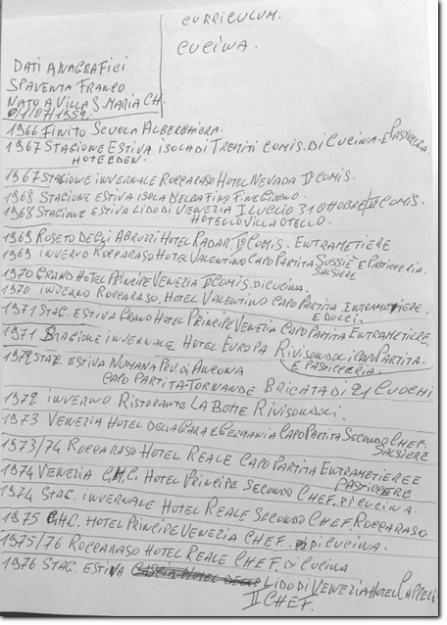 CURRICULUM.
CUCINA.
DATI ANAGRAFICI
SPAVENTA FRANCO
NATO A VILLA S. MARIA CH.
1966 FINITO SCUOLA ALBERGHIERA.
1967 STAGIONE ESTIVA ISOLA DI TREMITI COMIS. DI CUCINA E PASTICCERIA.
HOTEL EDEN.
1967 STAGIONE INVERNALE ROCCARASO HOTEL NEVADA II COMIS.
1968 STAGIONE ESTIVA ISOLA DELBA FINO FINE GIUGNO
1968 STAGIONE ESTIVA LIDO DI VENEZIA I LUGLIO 31 OTTOBRE II COMIS.
HOTEL VILLA OTELLO.
1969 ROSETO DEGLI ABRUZZI HOTEL RADAR II COMIS. ENTRAMETIERE.
1969 INVERNO ROCCARASO HOTEL VALENTINO CAPO PARTITA E PASTICCERIA.
SALSIERE
1970 GRAND HOTEL PRINCIPE VENEZIA II COMIS. DI CUCINA.
1970 INVERNO ROCCARASO. HOTEL VALENTINO CAPO PARTITA ENTRAMETIERE
E DOLCI.
1971 STAG. ESTIVA GRAND HOTEL PRINCIPE VENEZIA CAPO PARTITA ENTRAMETIERE
1971 STAGIONE INVERNALE HOTEL EUROPA RIVISONDOLI CAPO PARTITA.
E PASTICCERIA.
1972 STAG. ESTIVA NUMANA PROV. DI ANCONA
CAPO PARTITA-TORNANDE BRIGATA DI 21 CUOCHI
1972 INVERNO RISTORANTE LA BOTTE RIVISONDOLI.
1973 VENEZIA HOTEL DELLA GARA E GERMANIA CAPO PARTITA SECONDO CHEF.
SALSIERE
1973/74 ROCCARASO HOTEL REALE CAPO PARTITA ENTRAMETIERE E
PASTICCERE
1974 VENEZIA C.H.C. HOTEL PRINCIPE SECONDO CHEF. DI CUCINA.
1974 STAG. INVERNALE HOTEL REALE SECONDO CHEF ROCCARASO
1975 C.H.C. HOTEL PRINCIPE VENEZIA CHEF. DI CUCINA.
1975/76 ROCCARASO HOTEL REALE CHEF. DI CUCINA
1976 STAG. ESTIVA LIDO DI VENEZIA HOTEL CAPPELLI
II CHEF.